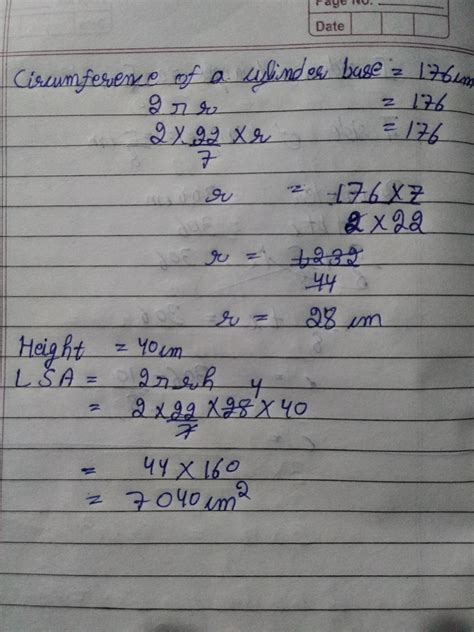 Page No.
Date
Circumference of a cylinder base = 176 cm
2πr = 176
2 × 22/7 × r = 176
r = 176 × 7
2 × 22
r = 1232
44
r = 28 cm
Height = 40 cm
LSA = 2πrh
4
= 2 × 22/7 × 28 × 40
= 44 × 160
= 7040 cm²